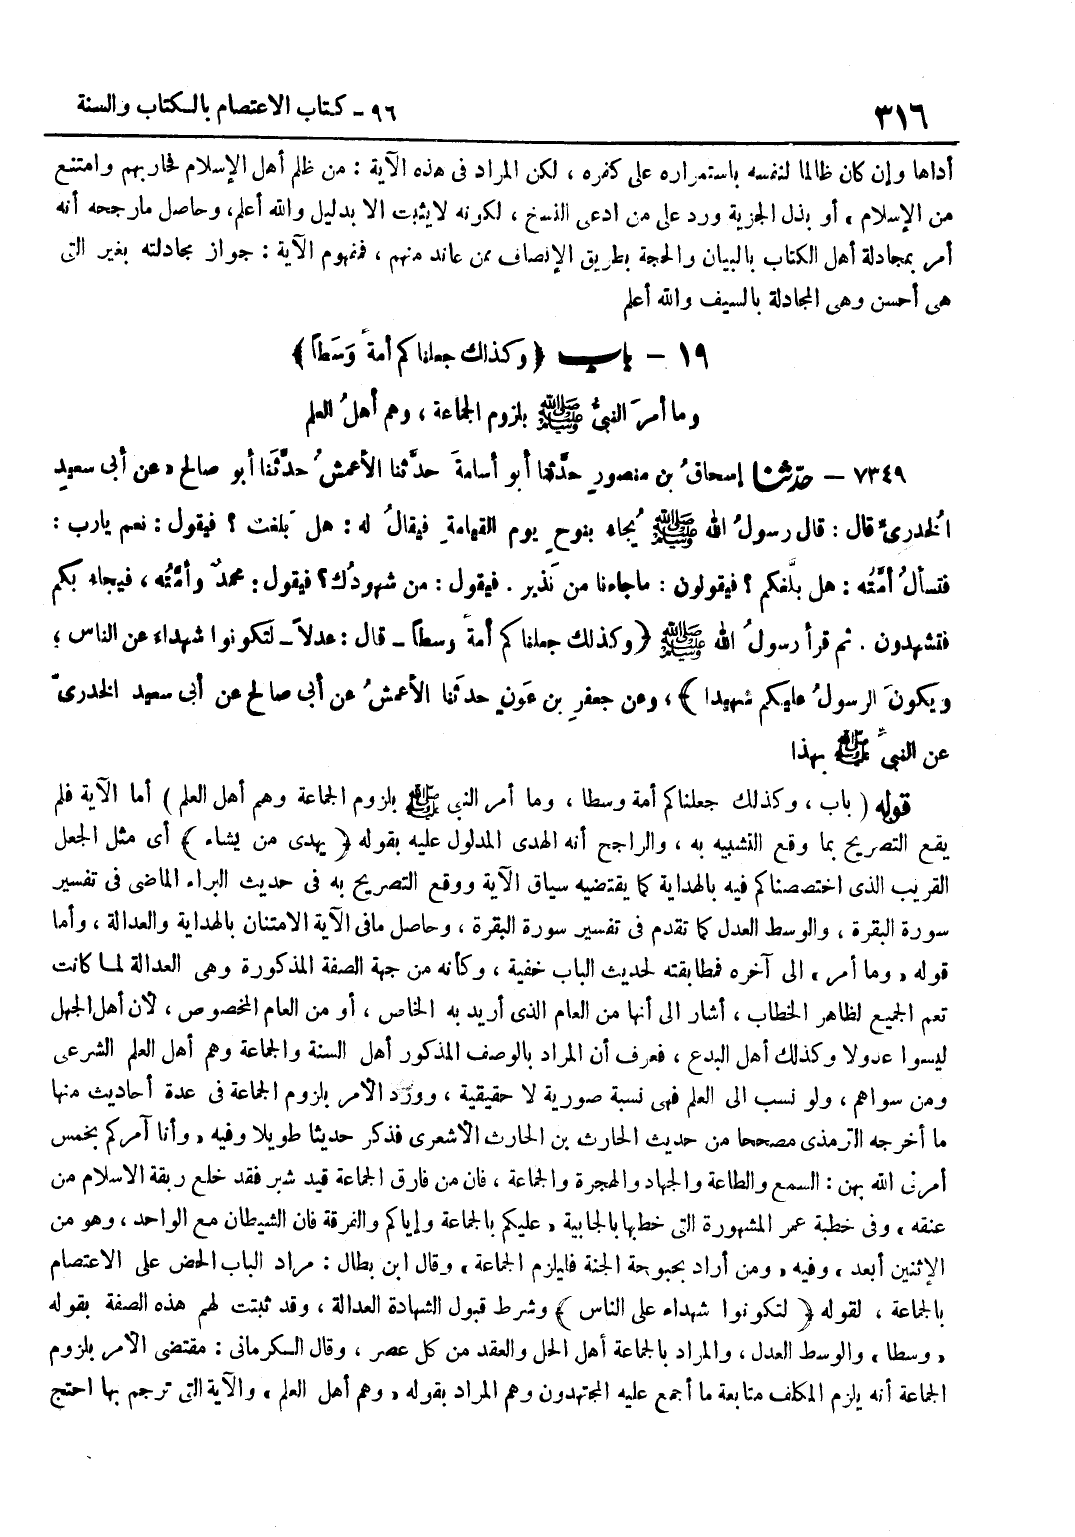 ٣١٦
٩٦ - كتاب الاعتصام بالكتاب والسنة
أداها وإن كان ظالما لنفسه باستمراره على كفره ، لكن المراد فى هذه الآية : من ظلم أهل الإسلام فحاربهم وامتنع
من الإسلام ، أو بذل الجزية ورد على من ادعى النسخ ، لكونه لايثبت الا بدليل والله أعلم، وحاصل مارجحه أنه
أمر بمجادلة أهل الكتاب بالبيان والحجة بطريق الإنصاف ممن عاند منهم ، فمفهوم الآية : جواز مجادلته بغير التى
هى أحسن وهى المجادلة بالسيف والله أعلم
١٩ - باب ﴿ وكذلك جعلناكم أمةً وَسَطاً ﴾
وما أمرَ النبىُّ ﷺ بلزوم الجماعة ، وهم أهلُ العلم
٧٣٤٩ - حدّثنا إسحاقُ بن منصورٍ حدَّثنا أبو أسامةَ حدَّثنا الأعمشُ حدَّثنا أبو صالح « عن أبى سعيدٍ
الخدرىِّ قال : قال رسولُ الله ﷺ يُجاء بنوحٍ يوم القيامةِ فيقالُ له : هل بَلغت ؟ فيقول : نعم يارب :
فتسألُ أمَّتُه : هل بلَّغكم ؟ فيقولون : ماجاءنا من نَذير . فيقول : من شهودُك؟ فيقول: محمدٌ وأمَّتُه ، فيجاء بكم
فتشهدون . ثم قرأ رسولُ الله ﷺ ﴿ وكذلك جعلناكم أمةً وسطاً - قال : عدلاً - لتكونوا شهداء على الناس ؛
ويكونَ الرسولُ عليكم شهيدا ﴾ ، وعن جعفرِ بن عَونٍ حدثنا الأعمشُ عن أبى صالح عن أبى سعيد الخدرىِّ
عن النبىِّ ﷺ بهذا
قوله ( باب ، وكذلك جعلناكم أمة وسطا ، وما أمر النبى ﷺ بلزوم الجماعة وهم أهل العلم ) أما الآية فلم
يقع التصريح بما وقع التشبيه به ، والراجح أنه الهدى المدلول عليه بقوله ﴿ يهدى من يشاء ﴾ أى مثل الجعل
القريب الذى اختصصناكم فيه بالهداية كما يقتضيه سياق الآية ووقع التصريح به فى حديث البراء الماضى فى تفسير
سورة البقرة ، والوسط العدل كما تقدم فى تفسير سورة البقرة ، وحاصل مافى الآية الامتنان بالهداية والعدالة ، وأما
قوله « وما أمر » الى آخره فمطابقته لحديث الباب خفية ، وكأنه من جهة الصفة المذكورة وهى العدالة لما كانت
تعم الجميع لظاهر الخطاب ، أشار الى أنها من العام الذى أريد به الخاص ، أو من العام المخصوص ، لأن أهل الجهل
ليسوا عدولا وكذلك أهل البدع ، فعرف أن المراد بالوصف المذكور أهل السنة والجماعة وهم أهل العلم الشرعى
ومن سواهم ، ولو نسب الى العلم فهى نسبة صورية لا حقيقية ، وورد الأمر بلزوم الجماعة فى عدة أحاديث منها
ما أخرجه الترمذى مصححا من حديث الحارث بن الحارث الأشعرى فذكر حديثا طويلا وفيه « وأنا آمركم بخمس
أمرنى الله بهن : السمع والطاعة والجهاد والهجرة والجماعة ، فان من فارق الجماعة قيد شبر فقد خلع ربقة الاسلام من
عنقه » وفى خطبة عمر المشهورة التى خطبها بالجابية « عليكم بالجماعة وإياكم والفرقة فان الشيطان مع الواحد ، وهو من
الإثنين أبعد » وفيه « ومن أراد بحبوحة الجنة فليلزم الجماعة » وقال ابن بطال : مراد الباب الحض على الاعتصام
بالجماعة ، لقوله ﴿ لتكونوا شهداء على الناس ﴾ وشرط قبول الشهادة العدالة ، وقد ثبتت لهم هذه الصفة بقوله
« وسطا » والوسط العدل ، والمراد بالجماعة أهل الحل والعقد من كل عصر ، وقال الكرمانى : مقتضى الأمر بلزوم
الجماعة أنه يلزم المكلف متابعة ما أجمع عليه المجتهدون وهم المراد بقوله « وهم أهل العلم » والآية التى ترجم بها احتج